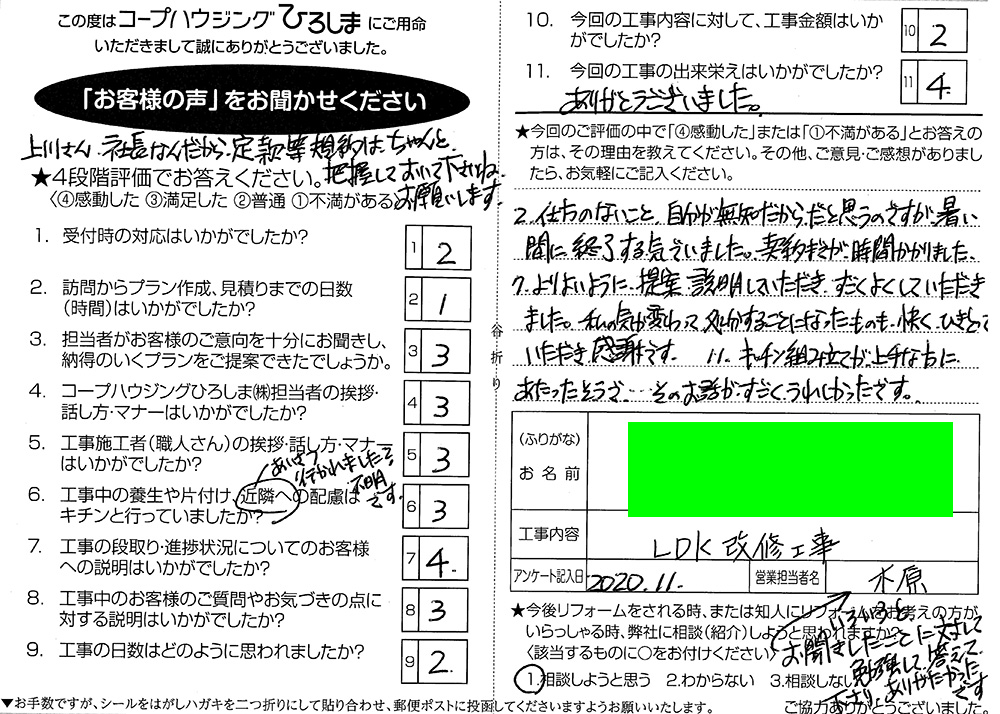 この度はコープハウジングひろしまにご用命
いただきまして誠にありがとうございました。
「お客様の声」をお聞かせください
上川さん、社長なんだから、定款等規約はちゃんと
把握しておいて下さいね。
お願いします。
★4段階評価でお答えください。
〈④感動した ③満足した ②普通 ①不満がある〉
1. 受付時の対応はいかがでしたか?
1 2
2. 訪問からプラン作成、見積りまでの日数
(時間)はいかがでしたか?
2 1
3. 担当者がお客様のご意向を十分にお聞きし、
納得のいくプランをご提案できたでしょうか。
3 3
4. コープハウジングひろしま㈱担当者の挨拶・
話し方・マナーはいかがでしたか?
4 3
5. 工事施工者(職人さん)の挨拶・話し方・マナー
はいかがでしたか?
5 3
あいさつ
行かれました?
不明
です。
6. 工事中の養生や片付け、近隣への配慮は
キチンと行っていましたか?
6 3
7. 工事の段取り・進捗状況についてのお客様
への説明はいかがでしたか?
7 4.
8. 工事中のお客様のご質問やお気づきの点に
対する説明はいかがでしたか?
8 3
9. 工事の日数はどのように思われましたか?
9 2.
▼お手数ですが、シールをはがしハガキを二つ折りにして貼り合わせ、郵便ポストに投函してくださいますようお願いいたします。
谷折り
10. 今回の工事内容に対して、工事金額はいか
がでしたか?
10 2
11. 今回の工事の出来栄えはいかがでしたか?
11 4.
ありがとうございました。
★今回のご評価の中で「④感動した」または「①不満がある」とお答えの
方は、その理由を教えてください。その他、ご意見・ご感想がありまし
たら、お気軽にご記入ください。
2. 仕方のないこと、自分が無知だからだと思うのですが、暑い
間に終了する気でいました。契約までが時間かかりました。
7. よりよいように、提案 説明していただき、すごくよくしていただき
ました。私の気が変わって、処分することになったものも、快く、ひきとって
いただき、感謝です。 11. キッチン組み立てが上手な方に
あたったそうで…そのお話が、すごくうれしかったです。
(ふりがな)
お名前
工事内容
LDK改修工事
アンケート記入日
2020.11.
営業担当者名
木原
★今後リフォームをされる時、または知人にリフォームをお考えの方が
いらっしゃる時、弊社に相談(紹介)しようと思われますか?
〈該当するものに○をお付けください〉
1.相談しようと思う 2.わからない 3.相談しない
いろいろと
お聞きしたことに対して
勉強して、答えて
ありがたかった
です
ご協力ありがとうございました。